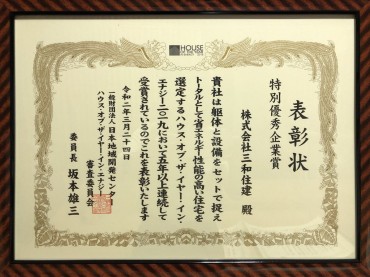 HOUSE
表彰状
特別優秀企業賞
株式会社三和住建 殿
貴社は躯体と設備をセットで捉え
トータルとして省エネルギー性能の高い住宅を
選定するハウス・オブ・ザ・イヤー・イン・
エナジー二〇一九において五年以上連続して
受賞されているのでこれを表彰いたします
令和二年三月二十四日
一般財団法人 日本地域開発センター
ハウス・オブ・ザ・イヤー・イン・エナジー
審査委員会
委員長 坂本雄三